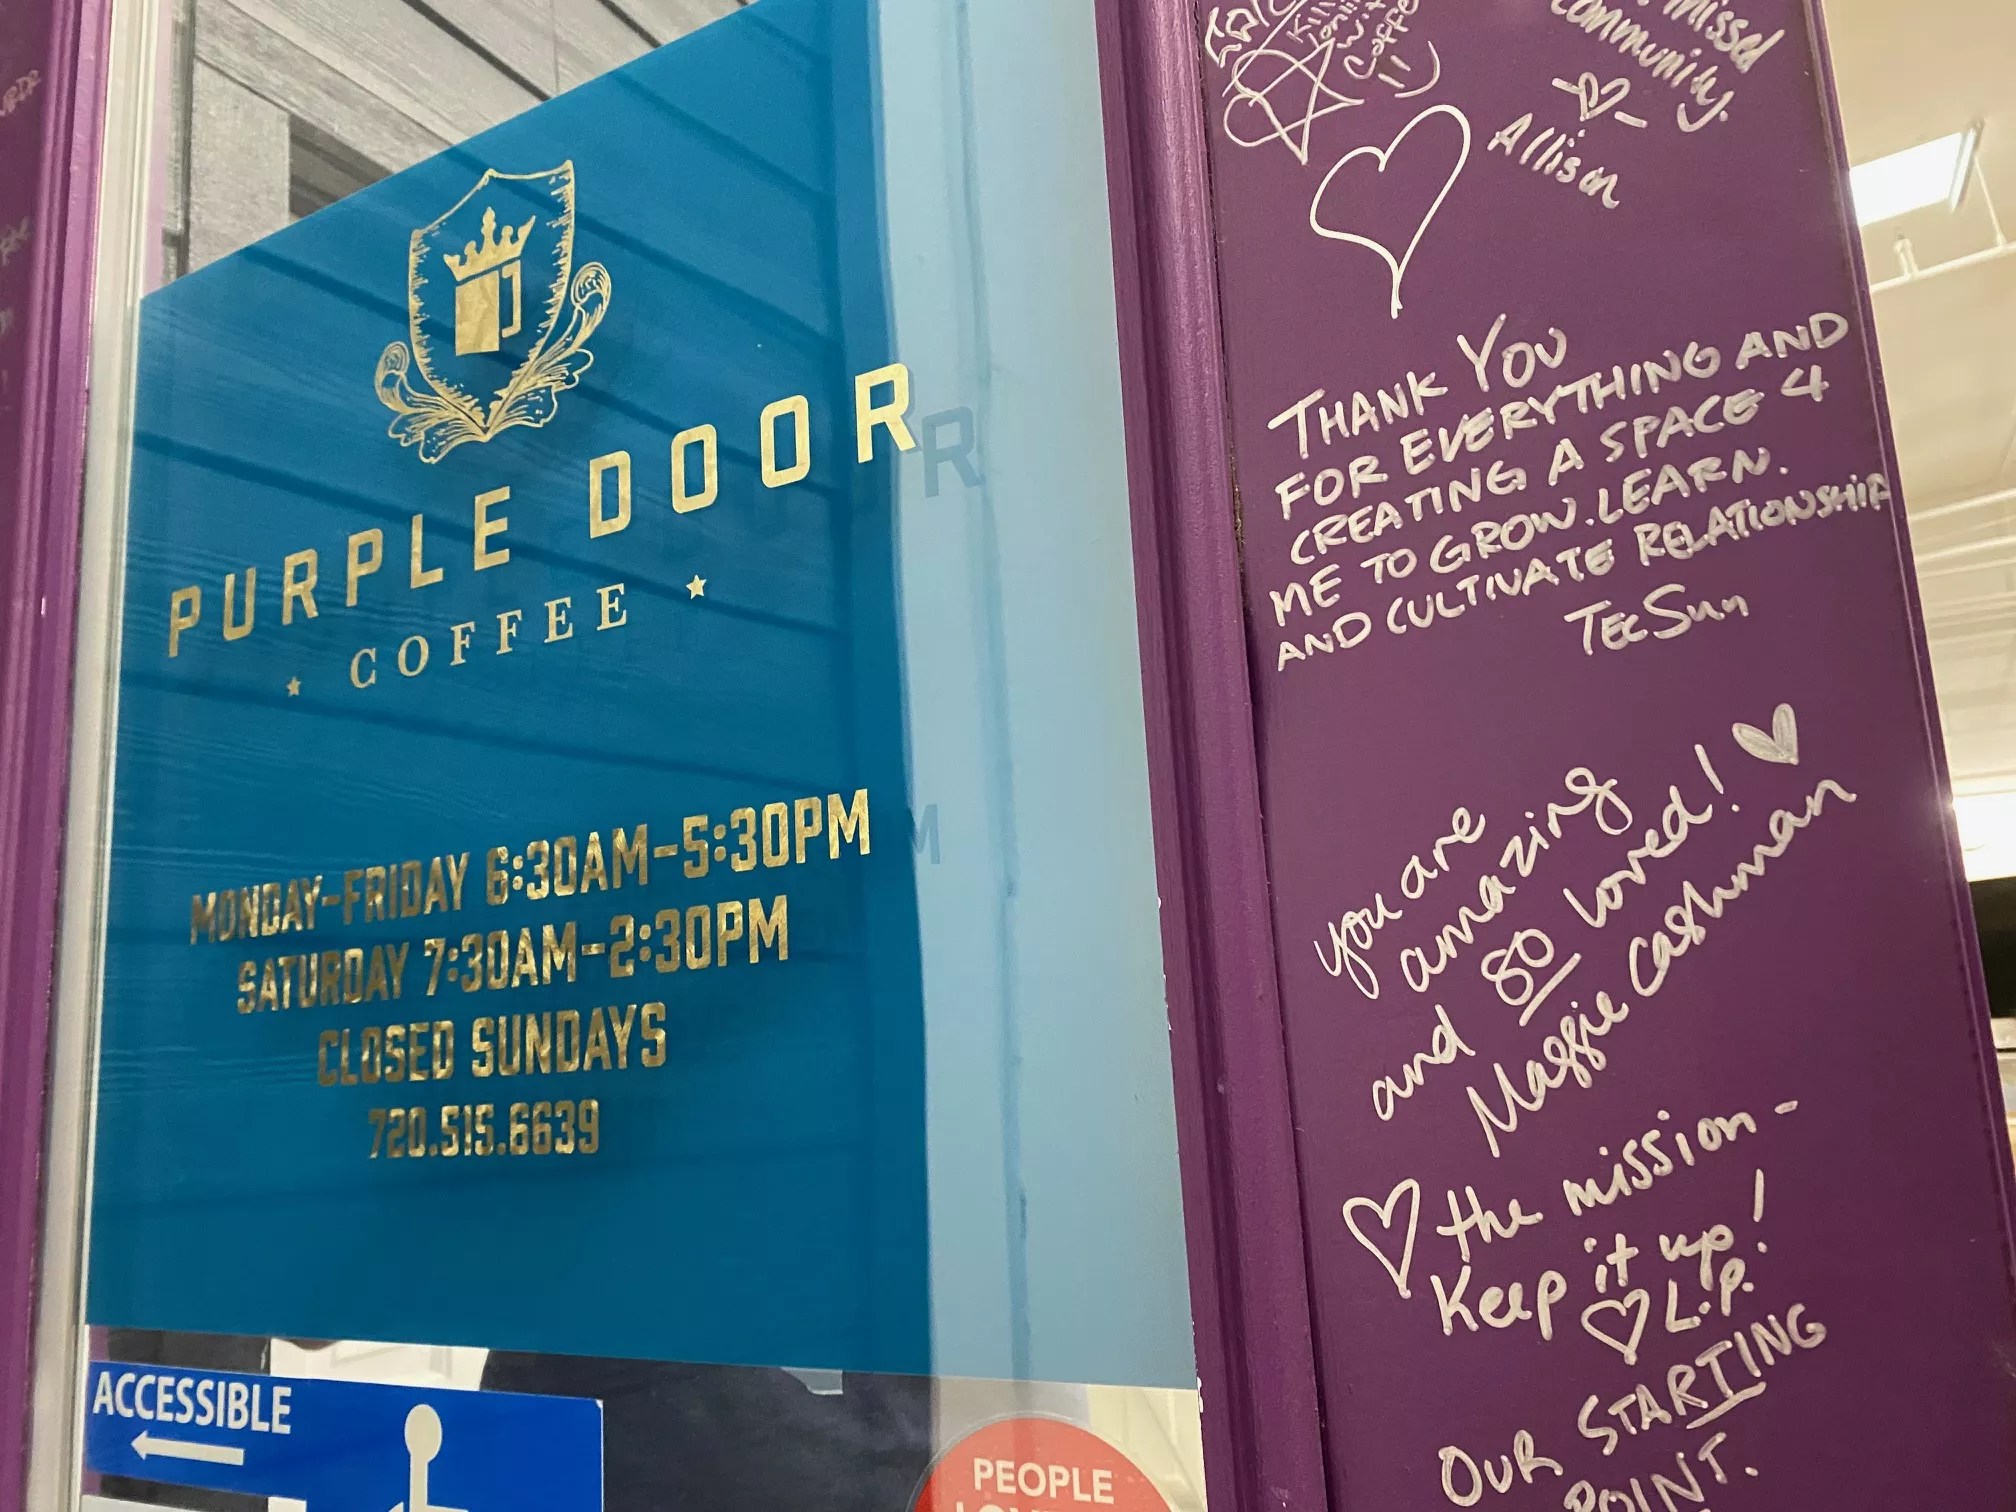 PURPLE DOOR
COFFEE
MONDAY-FRIDAY 6:30AM-5:30PM
SATURDAY 7:30AM-2:30PM
CLOSED SUNDAYS
720.515.6639
ACCESSIBLE
PEOPLE
with
Coffee
missed
community.
Allison
THANK YOU
FOR EVERYTHING AND
CREATING A SPACE 4
ME TO GROW. LEARN.
AND CULTIVATE RELATIONSHIP
TECSUN
you are
amazing
and SO loved!
Maggie Cashman
the mission-
Keep it up!
L.P.
OUR STARTING
POINT.